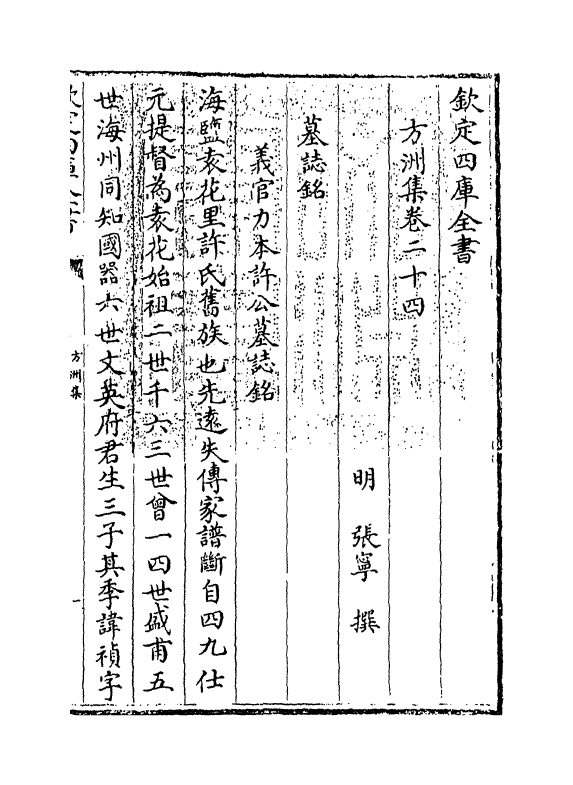 欽定四庫全書
方洲集卷二十四
明 張寧 撰
墓誌銘
義官力本許公墓誌銘
海鹽袁花里許氏舊族也先遠失傳家譜斷自四九仕
元提督為袁花始祖二世千六三世曾一四世盛甫五
世海州同知國器六世文英府君生三子其季諱禎字
方洲集